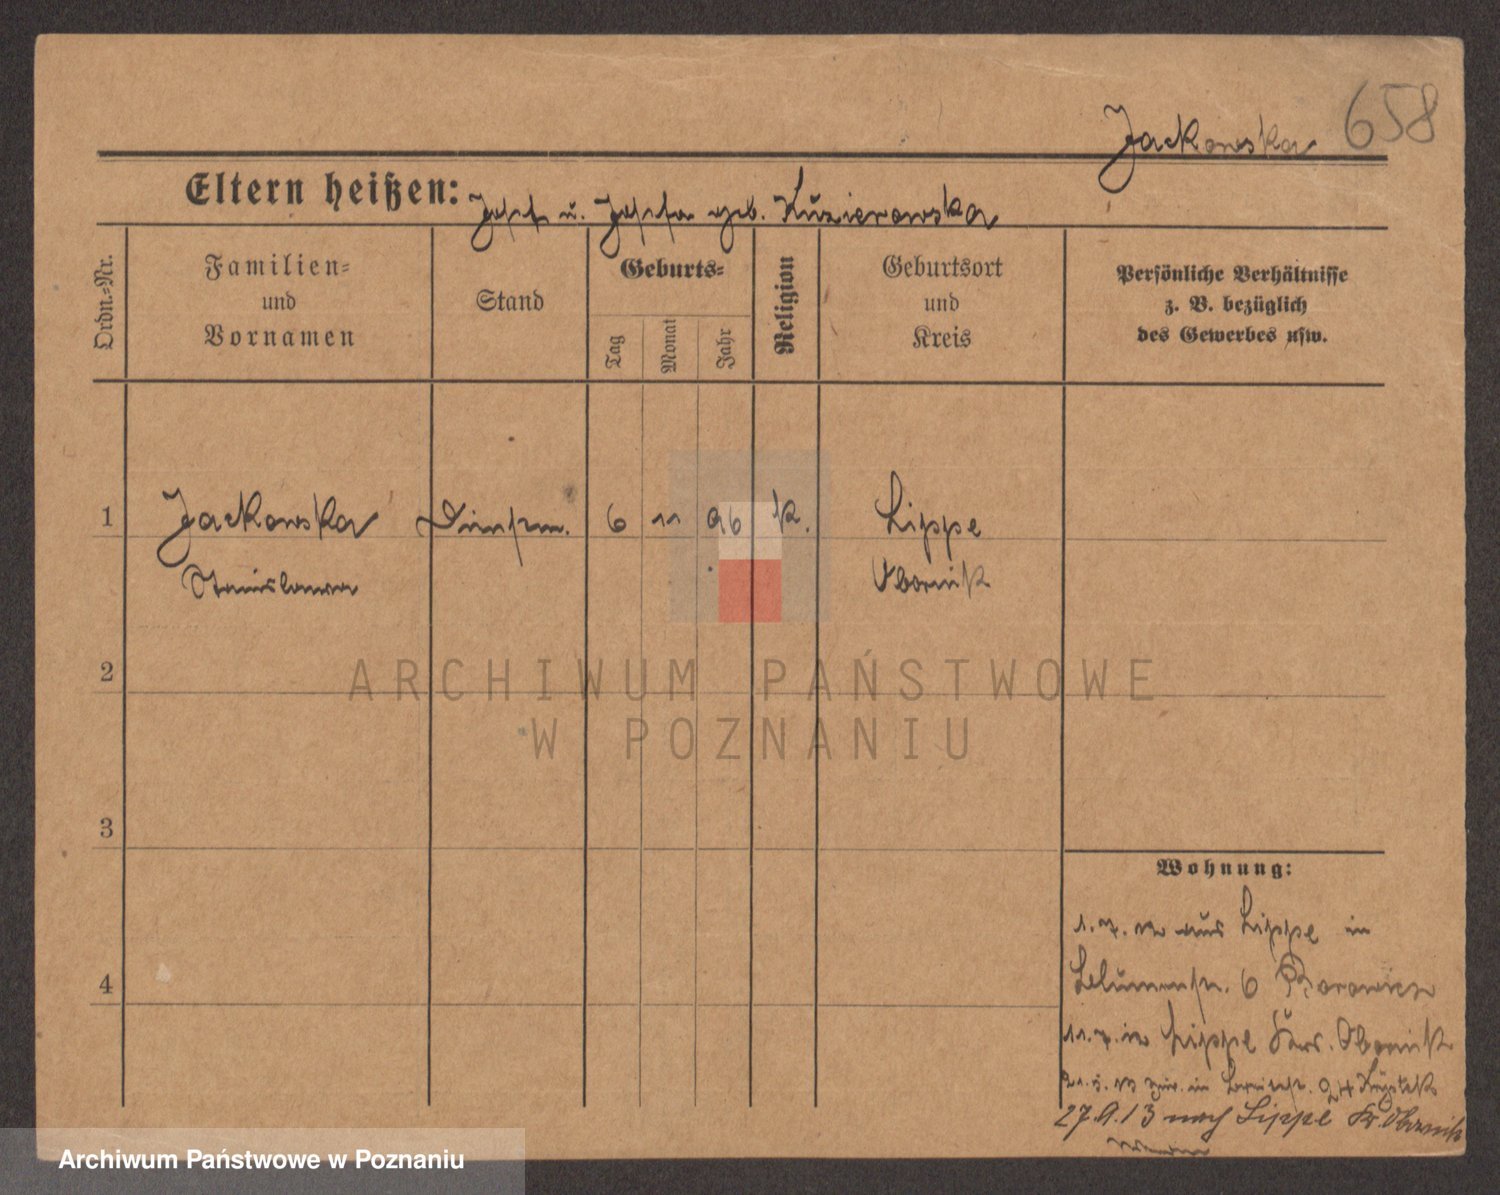 658
Jackowska
Eltern heißen: Josef u. Josefa geb. Kuzierowska
Ordn.-Nr.
Familien-
und
Vornamen
Stand
Geburts-
Tag
Monat
Jahr
Religion
Geburtsort
und
Kreis
Persönliche Verhältnisse
z. B. bezüglich
des Gewerbes usw.
1 Jackowska Dienstm. 6 11 96 k. Lippe
Stanislawa Obornik
2
ARCHIWUM PAŃSTWOWE
W POZNANIU
3
Wohnung:
1.7.12 aus Lippe in
4
Blumenstr. 6
11.7.12 Lippe Krs. Obornik
24
27.9.13 nach Lippe Kr. Obornik
Archiwum Państwowe w Poznaniu